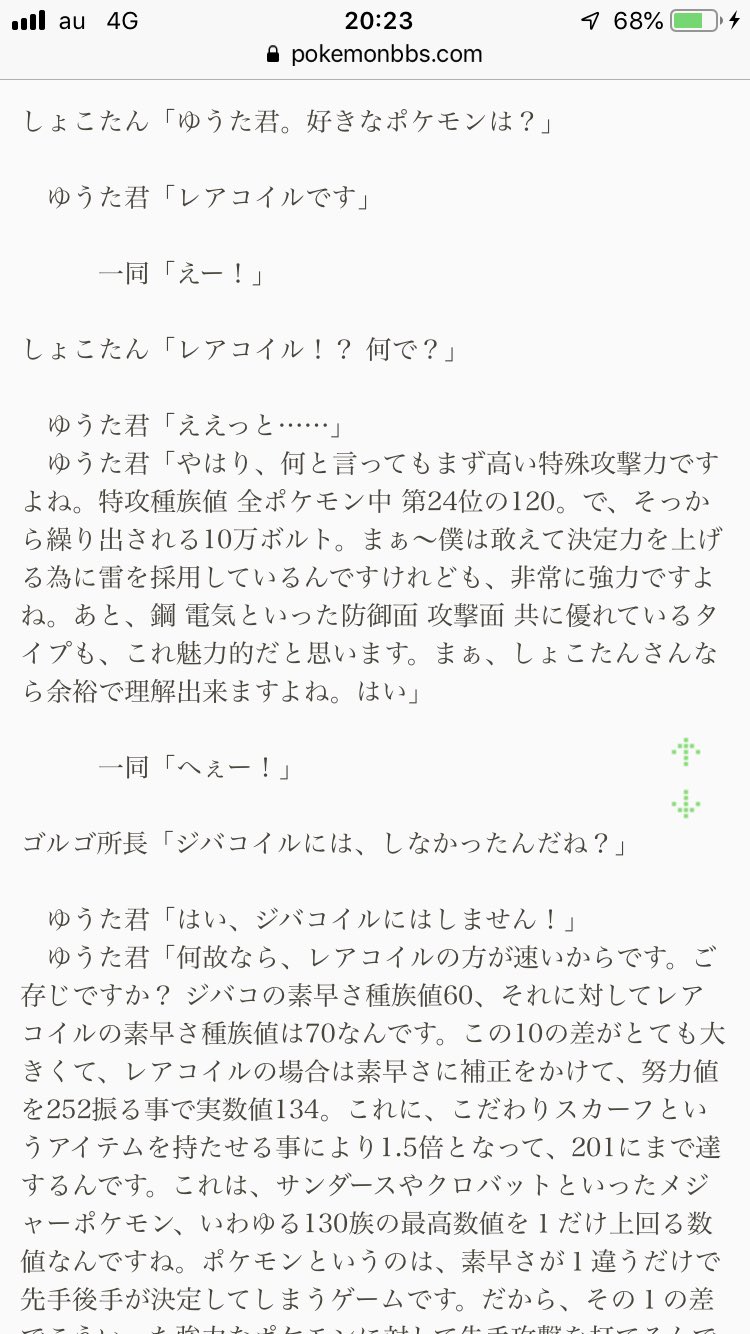 au 4G 20:23 68%
pokemonbbs.com
しょこたん「ゆうた君。好きなポケモンは？」
ゆうた君「レアコイルです」
一同「えー！」
しょこたん「レアコイル！？ 何で？」
ゆうた君「ええっと……」
ゆうた君「やはり、何と言ってもまず高い特殊攻撃力です
よね。特攻種族値 全ポケモン中 第24位の120。で、そっか
ら繰り出される10万ボルト。まぁ〜僕は敢えて決定力を上げ
る為に雷を採用しているんですけれども、非常に強力ですよ
ね。あと、鋼 電気といった防御面 攻撃面 共に優れているタ
イプも、これ魅力的だと思います。まぁ、しょこたんさんな
ら余裕で理解出来ますよね。はい」
一同「へぇー！」
ゴルゴ所長「ジバコイルには、しなかったんだね？」
ゆうた君「はい、ジバコイルにはしません！」
ゆうた君「何故なら、レアコイルの方が速いからです。ご
存じですか？ ジバコの素早さ種族値60、それに対してレア
コイルの素早さ種族値は70なんです。この10の差がとても大
きくて、レアコイルの場合は素早さに補正をかけて、努力値
を252振る事で実数値134。これに、こだわりスカーフとい
うアイテムを持たせる事により1.5倍となって、201にまで達
するんです。これは、サンダースやクロバットといったメジ
ャーポケモン、いわゆる130族の最高数値を１だけ上回る数
値なんですね。ポケモンというのは、素早さが１違うだけで
先手後手が決定してしまうゲームです。だから、その１の差
でこういった強力なポケモンに対して先手攻撃を打てるんで